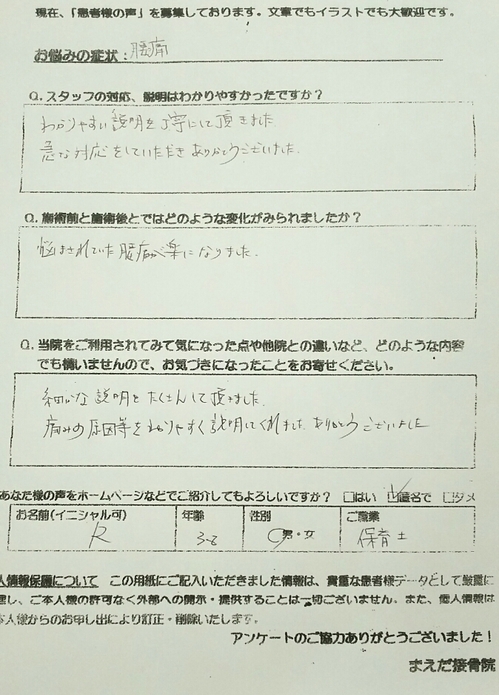 現在、「患者様の声」を募集しております。文章でもイラストでも大歓迎です。
お悩みの症状：腰痛
Q. スタッフの対応、説明はわかりやすかったですか？
わかりやすい説明を丁寧にして頂きました。
急な対応をしていただきありがとうございました。
Q. 施術前と施術後とではどのような変化がみられましたか？
悩まされていた腰痛が楽になりました。
Q. 当院をご利用されてみて気になった点や他院との違いなど、どのような内容
でも構いませんので、お気づきになったことをお寄せください。
細かな説明をたくさんして頂きました。
痛みの原因等をわかりやすく説明してくれました。ありがとうございました
あなた様の声をホームページなどでご紹介してもよろしいですか？ □はい ☑匿名で □ダメ
お名前(イニシャル可) 年齢 性別 ご職業
K 男・女 保育士
人情報保護について この用紙にご記入いただきました情報は、貴重な患者様データとして厳重に
理し、ご本人様の許可なく外部への開示・提供することは一切ございません。また、個人情報は
本人様からのお申し出により訂正・削除いたします。
アンケートのご協力ありがとうございました！
まえだ接骨院